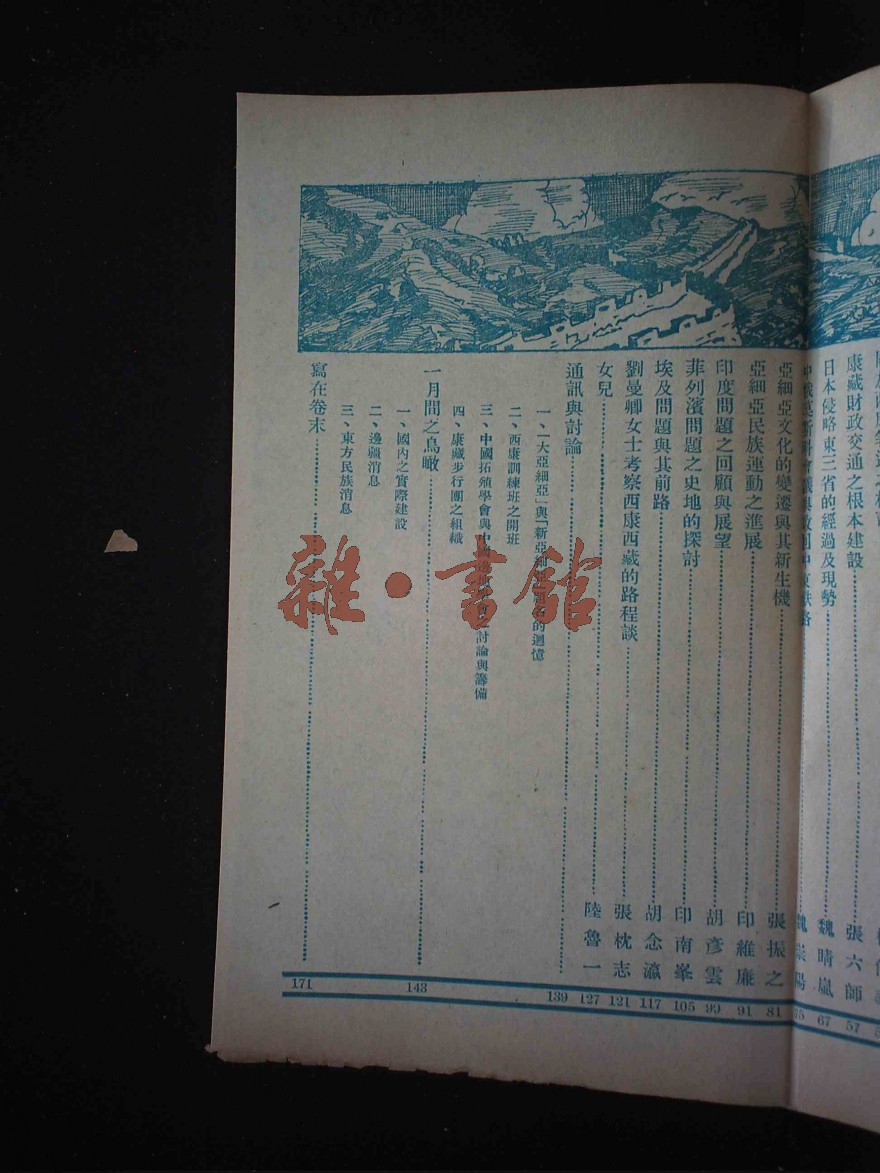 康藏財政交通之根本建設 張六師 57
日本侵略東三省的經過及現勢 魏晴嵐 67
魏崇陽
亞細亞文化的變遷與其新生機 張振之 81
亞細亞民族運動之進展 印維廉 91
印度問題之回顧與展望 胡彥雲 99
菲列濱問題之史地的探討 印南峯 105
埃及問題與其前路 胡念瀛 117
劉曼卿女士考察西康西藏的路程談 張枕志 121
女兒 陸魯一 127
通訊與討論 139
一、「大亞細亞」與「新亞細亞 的迴憶
二、西康訓練班之開班
三、中國拓殖學會與中國邊 討論與籌備
四、康藏步行團之組織
一月間之鳥瞰 143
一、國內之實際建設
二、邊疆消息
三、東方民族消息
寫在卷末 171
雜·書館